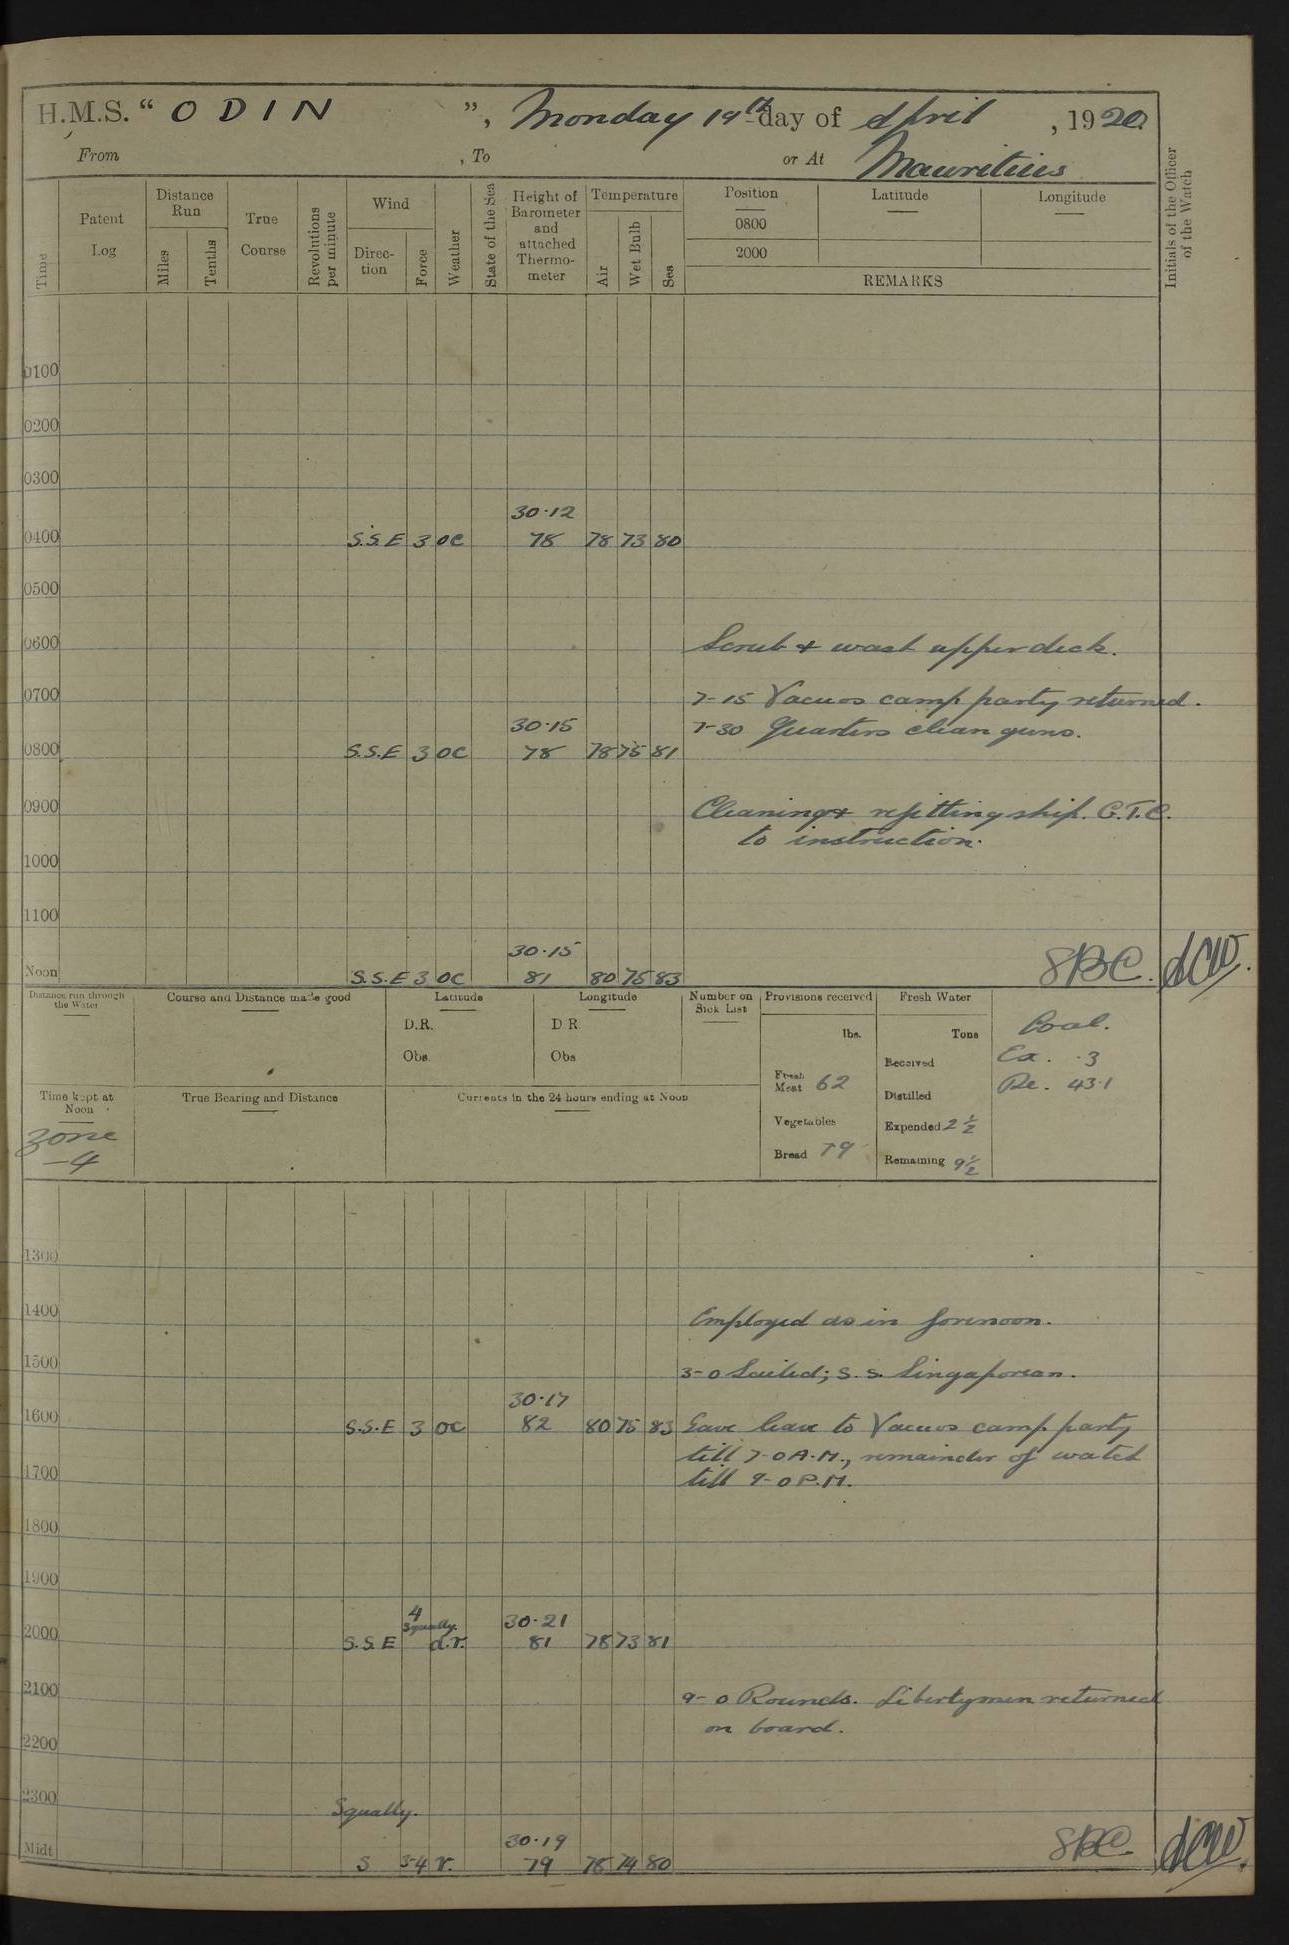 H.M.S. “ O D I N ”, Monday 19th day of April, 1920
From , To or At Mauritius
Time
Patent Log
Distance Run
Miles
Tenths
True Course
Revolutions per minute
Wind
Direc-tion
Force
Weather
State of the Sea
Height of Barometer and attached Thermo-meter
Temperature
Air
Wet Bulb
Sea
Position Latitude Longitude
0800
2000
REMARKS
Initials of the Officer of the Watch
0100
0200
0300
30·12
0400 S.S.E 3 oc 78 78 73 80
0500
0600 Scrub & wash upper deck.
0700 7-15 Vacuos camp party returned.
30·15 7-30 Quarters clean guns.
0800 S.S.E 3 oc 78 78 75 81
0900 Cleaning & refitting ship. G.T.C.
to instruction.
1000
1100
30·15
Noon S.S.E 3 oc 81 80 75 83 SBC. ACW.
Distance run through the Water
Course and Distance made good
Latitude
D.R.
Obs.
Longitude
D R
Obs
Number on Sick List
Provisions received
lbs.
Fresh Meat 62
Vegetables
Bread 79
Fresh Water
Tons
Received
Distilled
Expended 2½
Remaining 9½
Coal.
Ex. ·3
Re. 43·1
Time kept at Noon
Zone
-4
True Bearing and Distance
Currents in the 24 hours ending at Noon
1300
1400 Employed as in forenoon.
1500 3-0 Sailed; S.S. Singaporean.
30·17
1600 S.S.E 3 oc 82 80 75 83 Gave leave to Vacuos camp party
till 7-0 A.M., remainder of watch
1700 till 9-0 P.M.
1800
1900
4 squally. 30·21
2000 S.S.E d.r. 81 78 73 81
2100 9-0 Rounds. Libertymen returned
on board.
2200
2300
Squally.
30·19
Midt S 3-4 r. 79 78 74 80 SBC. ACW.